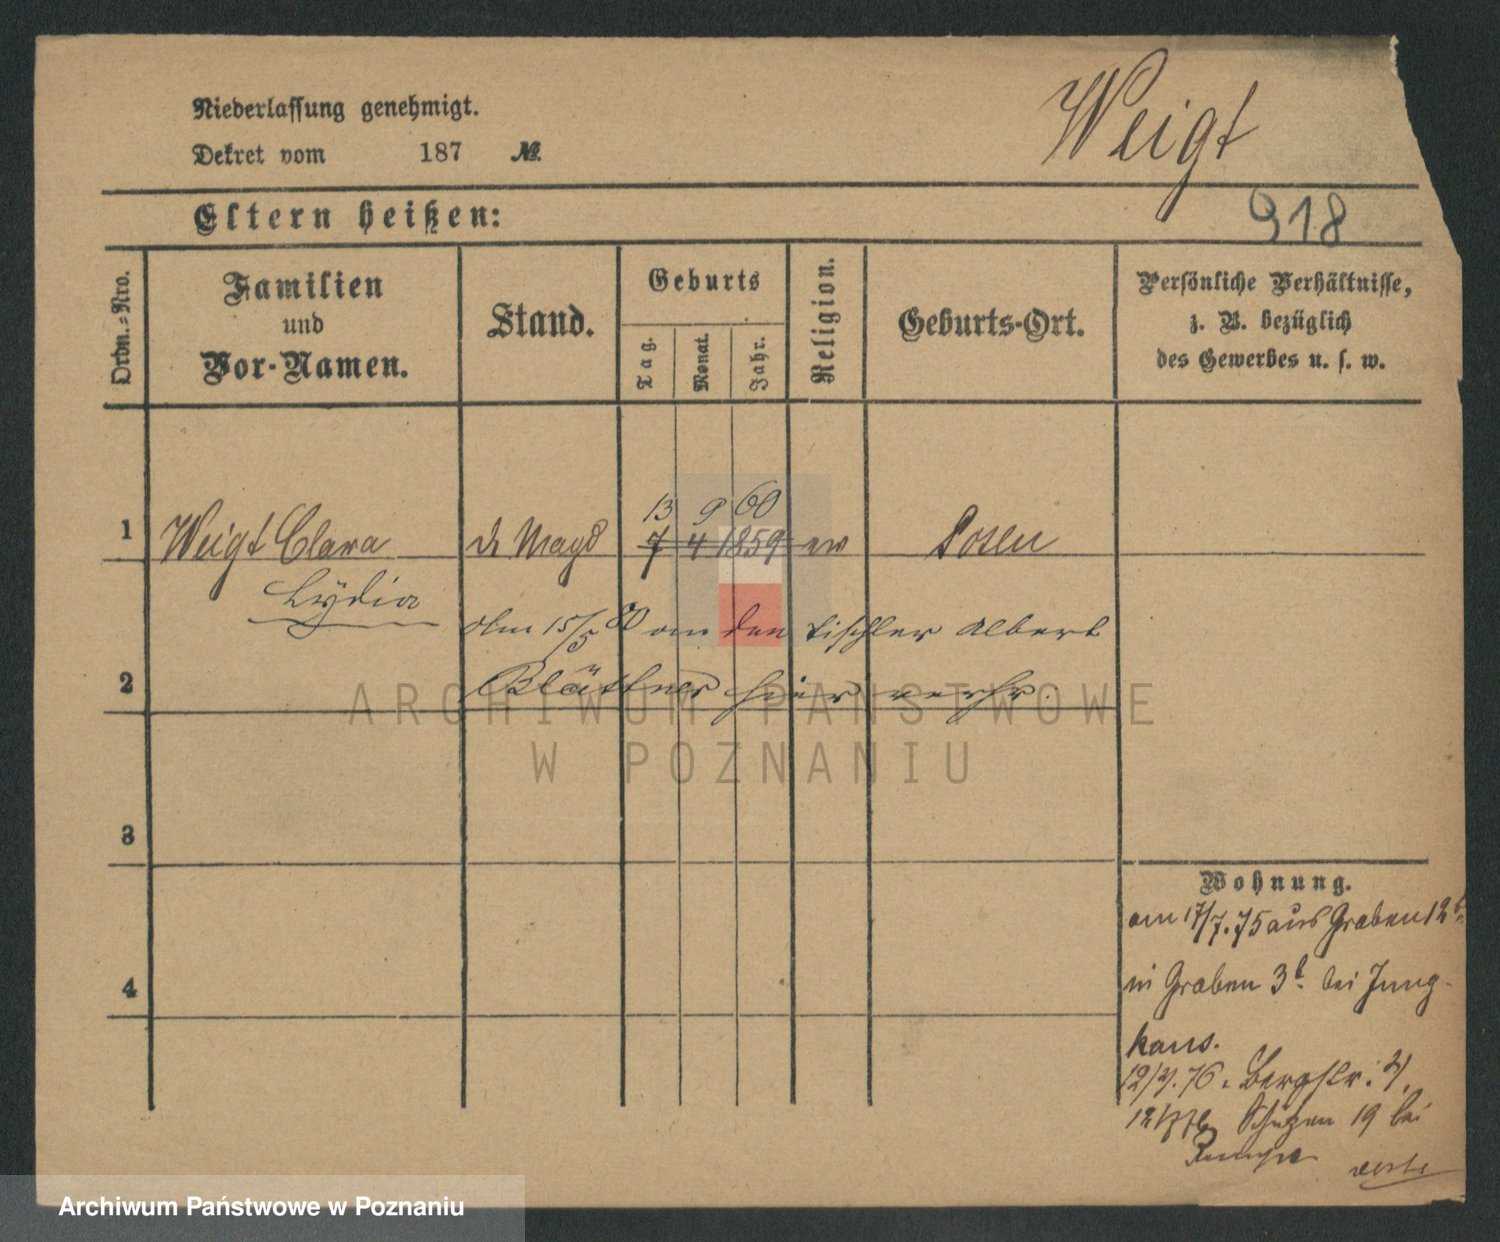 Niederlassung genehmigt.
Dekret vom 187 №.
Weigt
Eltern heißen:
918
Ordn.-Nro.
Familien
und
Vor-Namen.
Stand.
Geburts
Tag.
Monat.
Jahr.
Religion.
Geburts-Ort.
Persönliche Verhältnisse,
z. B. bezüglich
des Gewerbes u. s. w.
13 9 60
1 Weigt Clara d. Magd 7 4 1859 ev Posen
Lydia
Am 15/5 80 an den Tischler Albert
2 Blättner hier verhr.
ARCHIWUM PAŃSTWOWE
W POZNANIU
3
4
Wohnung.
am 17/7. 75 aus Graben 12b
in Graben 3b. bei Jung-
kans.
12/ . 76. Bergstr.
Schützen 19 bei
Archiwum Państwowe w Poznaniu